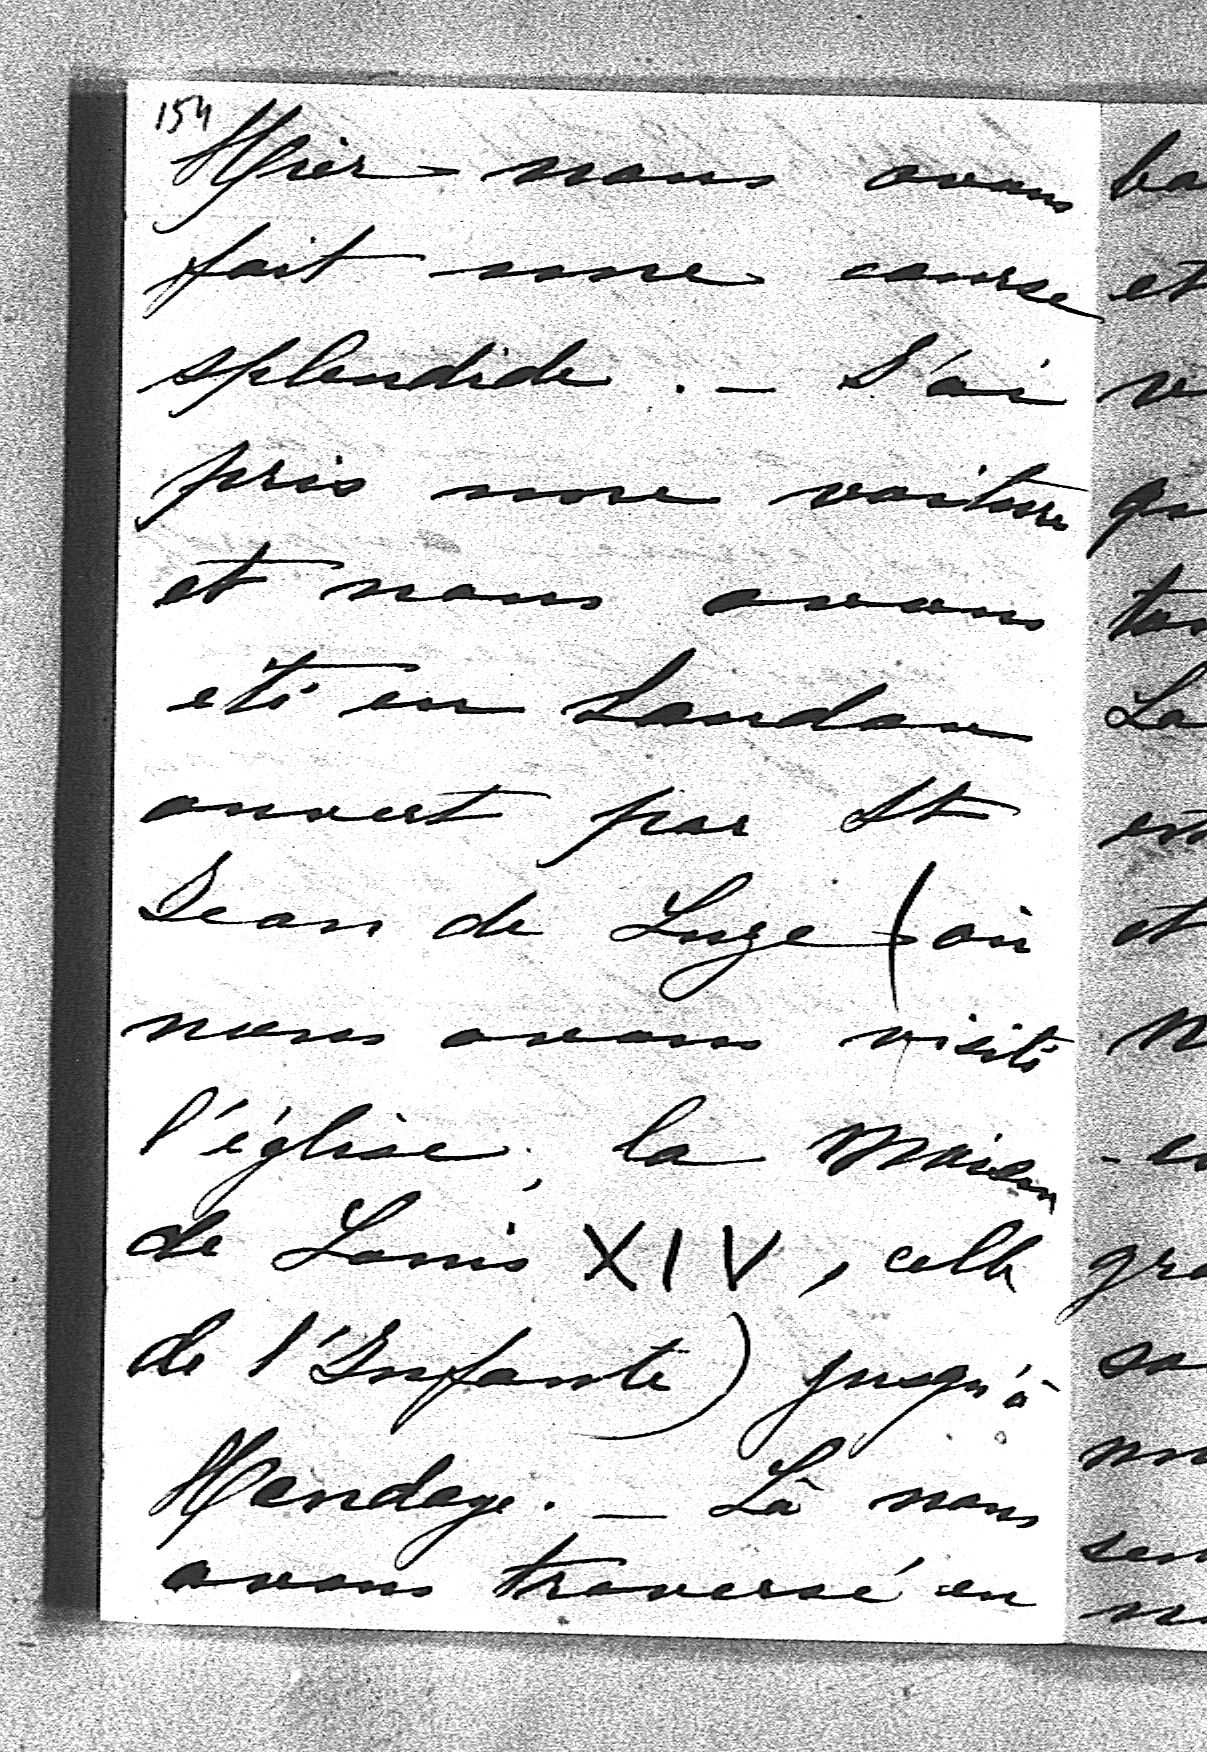 154
Hier nous avons
fait une course
splendide. — J'ai
pris une voiture
et nous avons
eté en Landau
ouvert par St
Jean de Luze (où
nous avons visité
l'église, la maison
de Louis XIV, celle
de l'Infante) jusqu'à
Hendaye. — Là nous
avons traversé en
et
La
et